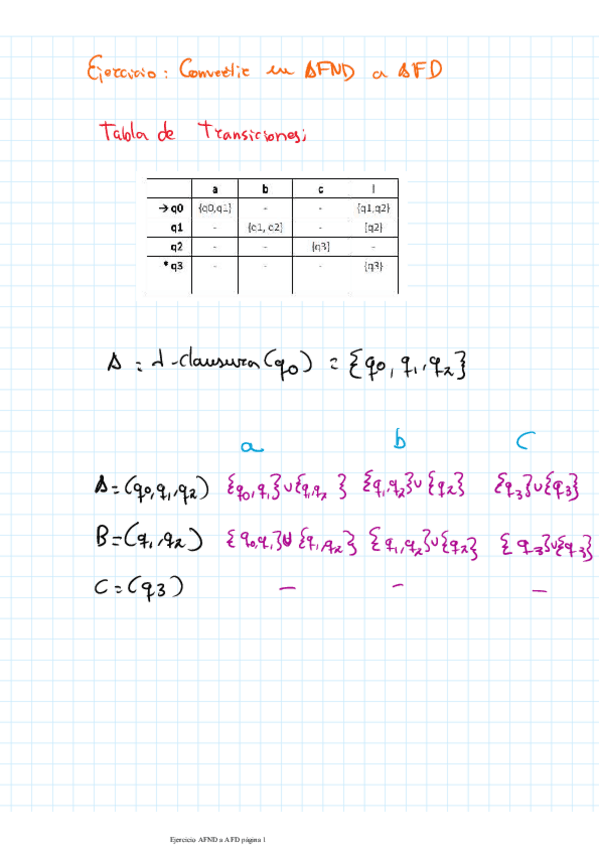 Ejercicio: Convertir un AFND a AFD
Tabla de Transiciones;
a b c l
→q0 {q0,q1} - - {q1,q2}
q1 - {c1, c2} - {q2}
q2 - - {q3} -
*q3 - - - {q3}
A = λ-clausura(q0) = {q0, q1, q2}
a b C
A=(q0,q1,q2) {q0,q1}∪{q1,q2} {q1,q2}∪{q2} {q3}∪{q3}
B=(q1,q2) {q0,q1}∪{q1,q2} {q1,q2}∪{q2} {q3}∪{q3}
C=(q3) - - -
Ejercicio AFND a AFD página 1